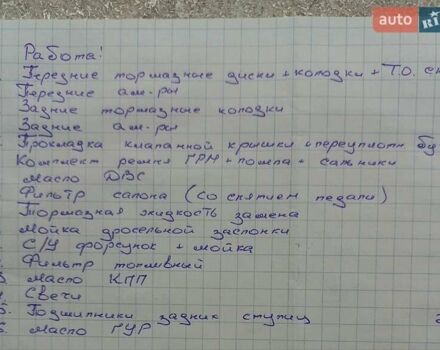 auto RIA
Работа:
Передние тормазные диски + колодки + Т.О.
Передние ам-ры
Задние тормазные колодки
Задние ам-ры
Прокладка клапанной крышки + переуплотн
Комплект ремня ГРМ + помпа + сальники
Масло ДВС
Фильтр салона (со снятием педали)
Тормазная жидкость замена
Мойка дросельной заслонки
С/У форсунок + мойка
Фильтр топливный
Масло КПП
Свечи
Подшипники задних ступиц
Масло ГУР